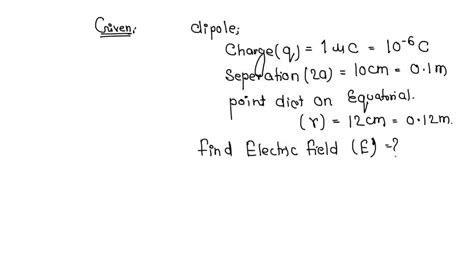 Given: dipole;
Charge(q) = 1 μC = 10⁻⁶ C
Seperation (2a) = 10cm = 0.1m
point dist on Equatorial.
(r) = 12cm = 0.12m.
find Electric field (E) = ?